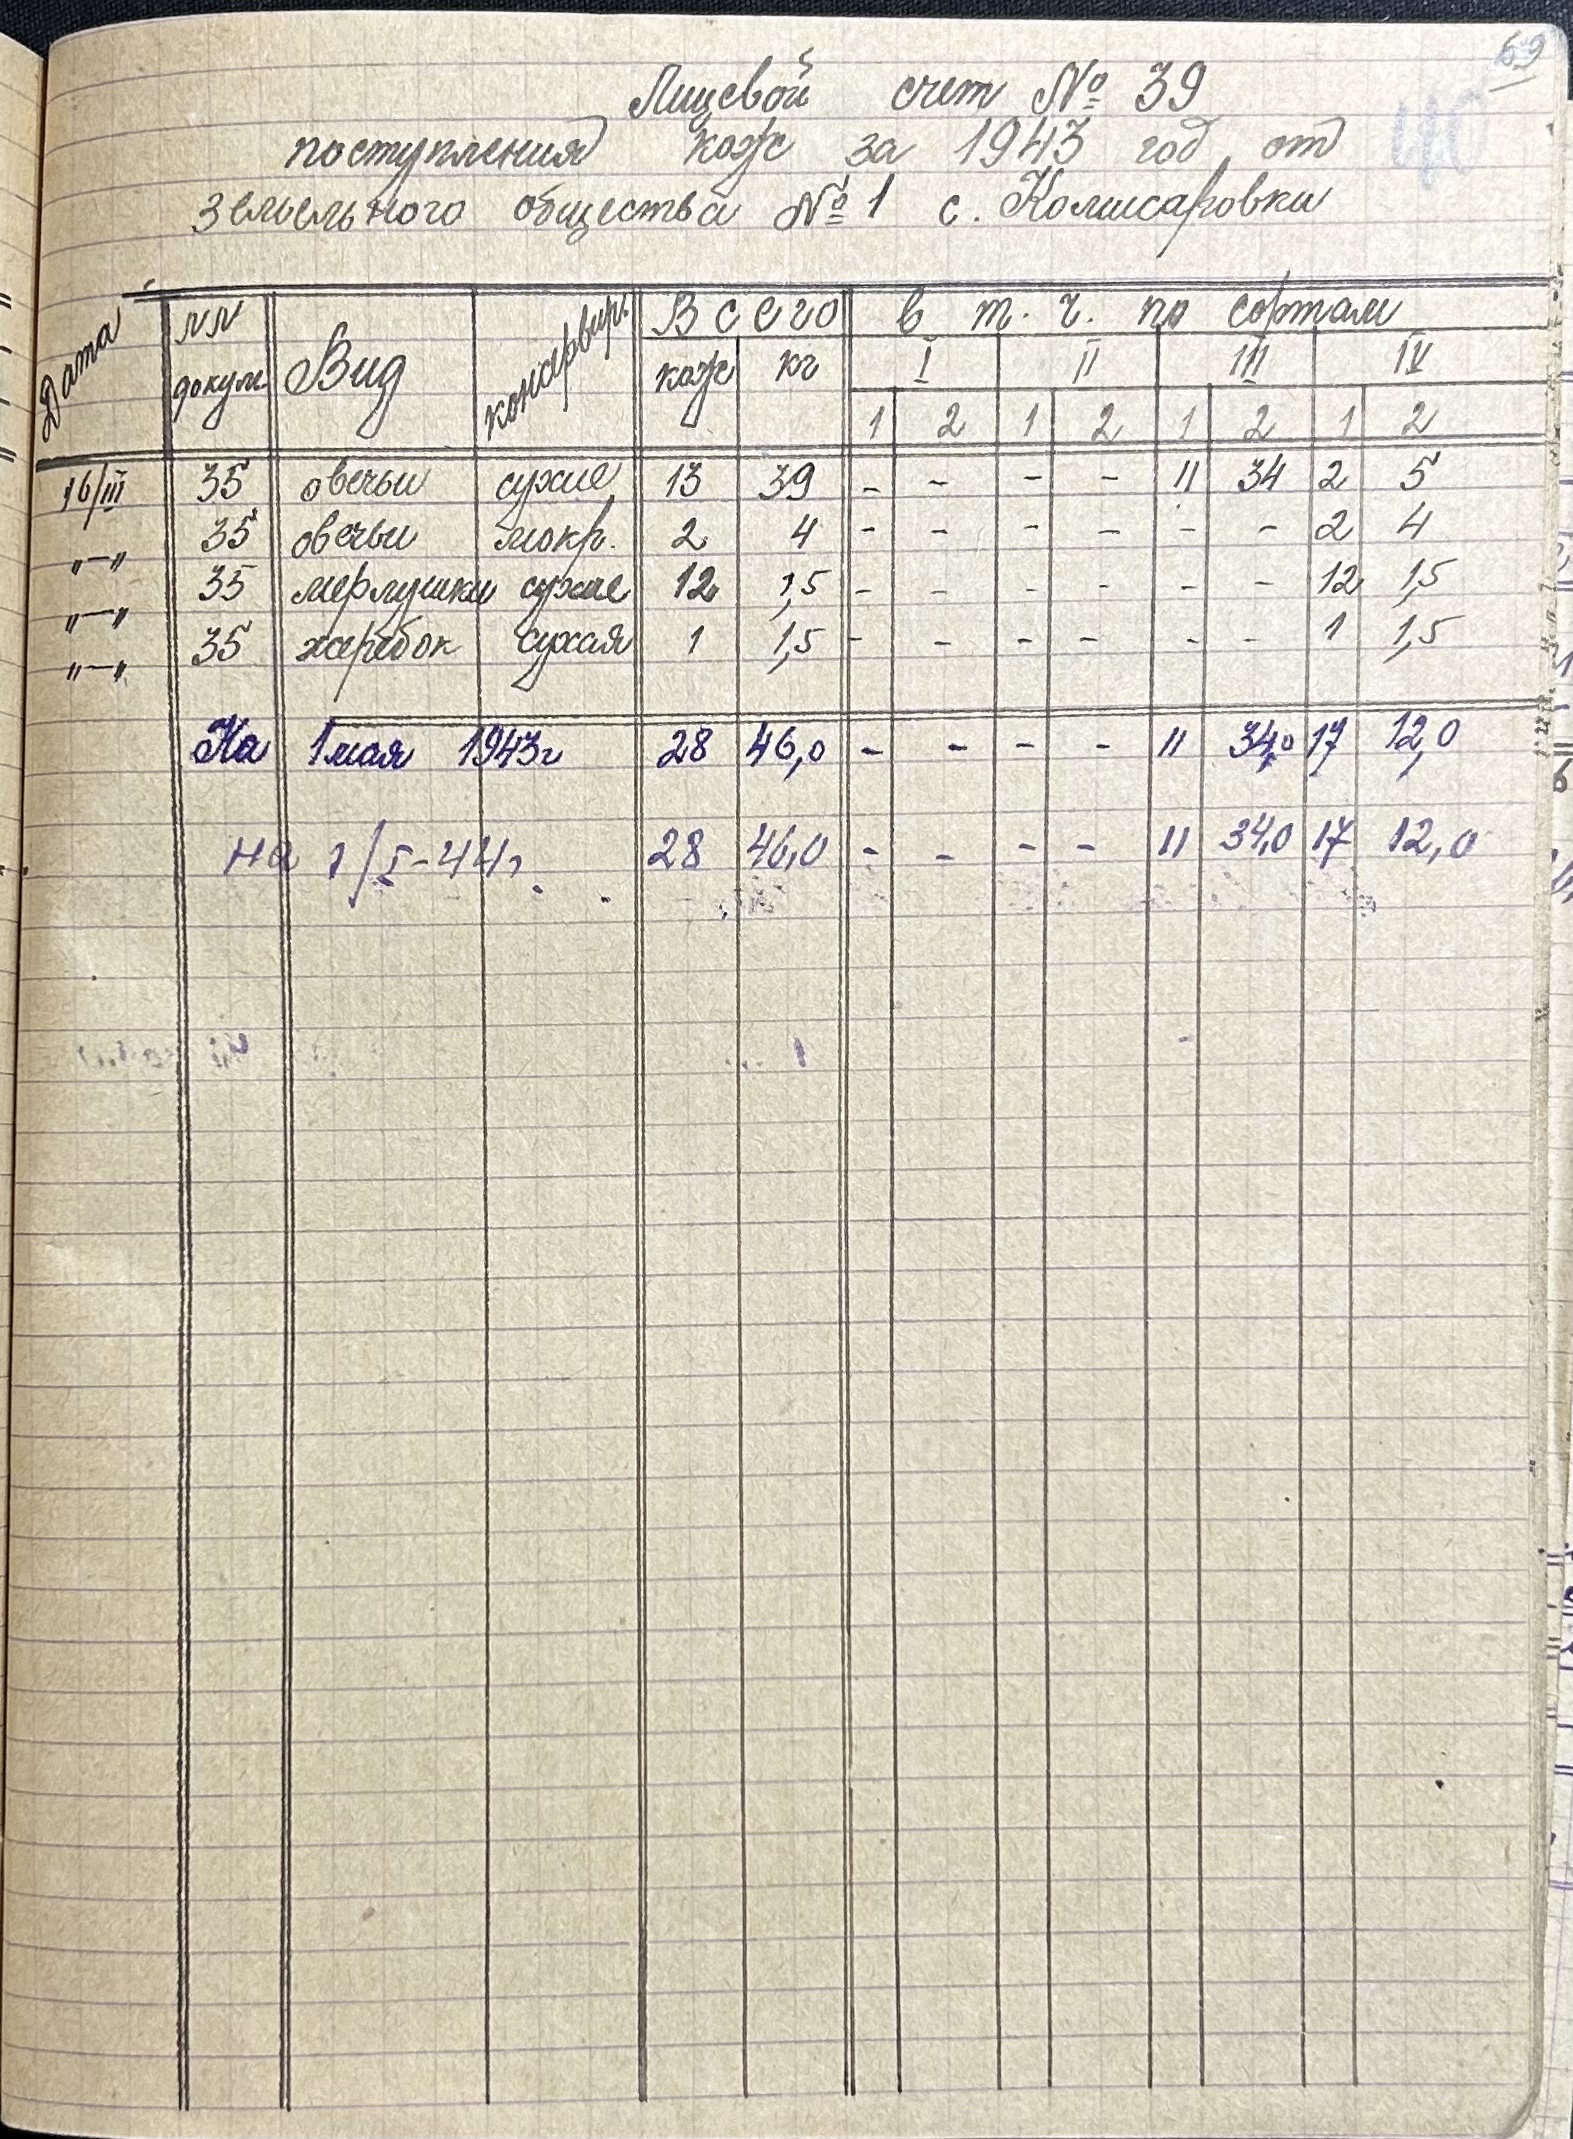 59
40
Лицевой счет № 39
поступления кож за 1943 год от
земельного общества № 1 с. Комисаровки
Дата пп докум. Вид консервир. Всего в т. ч. по сортам
кож кг I II III IV
1 2 1 2 1 2 1 2
16/III 35 овечьи сухие 13 39 - - - - 11 34 2 5
"—" 35 овечьи мокр. 2 4 - - - - - - 2 4
"—" 35 мерлушки сухие 12 1,5 - - - - - - 12 1,5
"—" 35 жеребок сухая 1 1,5 - - - - - - 1 1,5
На 1 мая 1943г 28 46,0 - - - - 11 34,0 17 12,0
на 1/I-44г. 28 46,0 - - - - 11 34,0 17 12,0